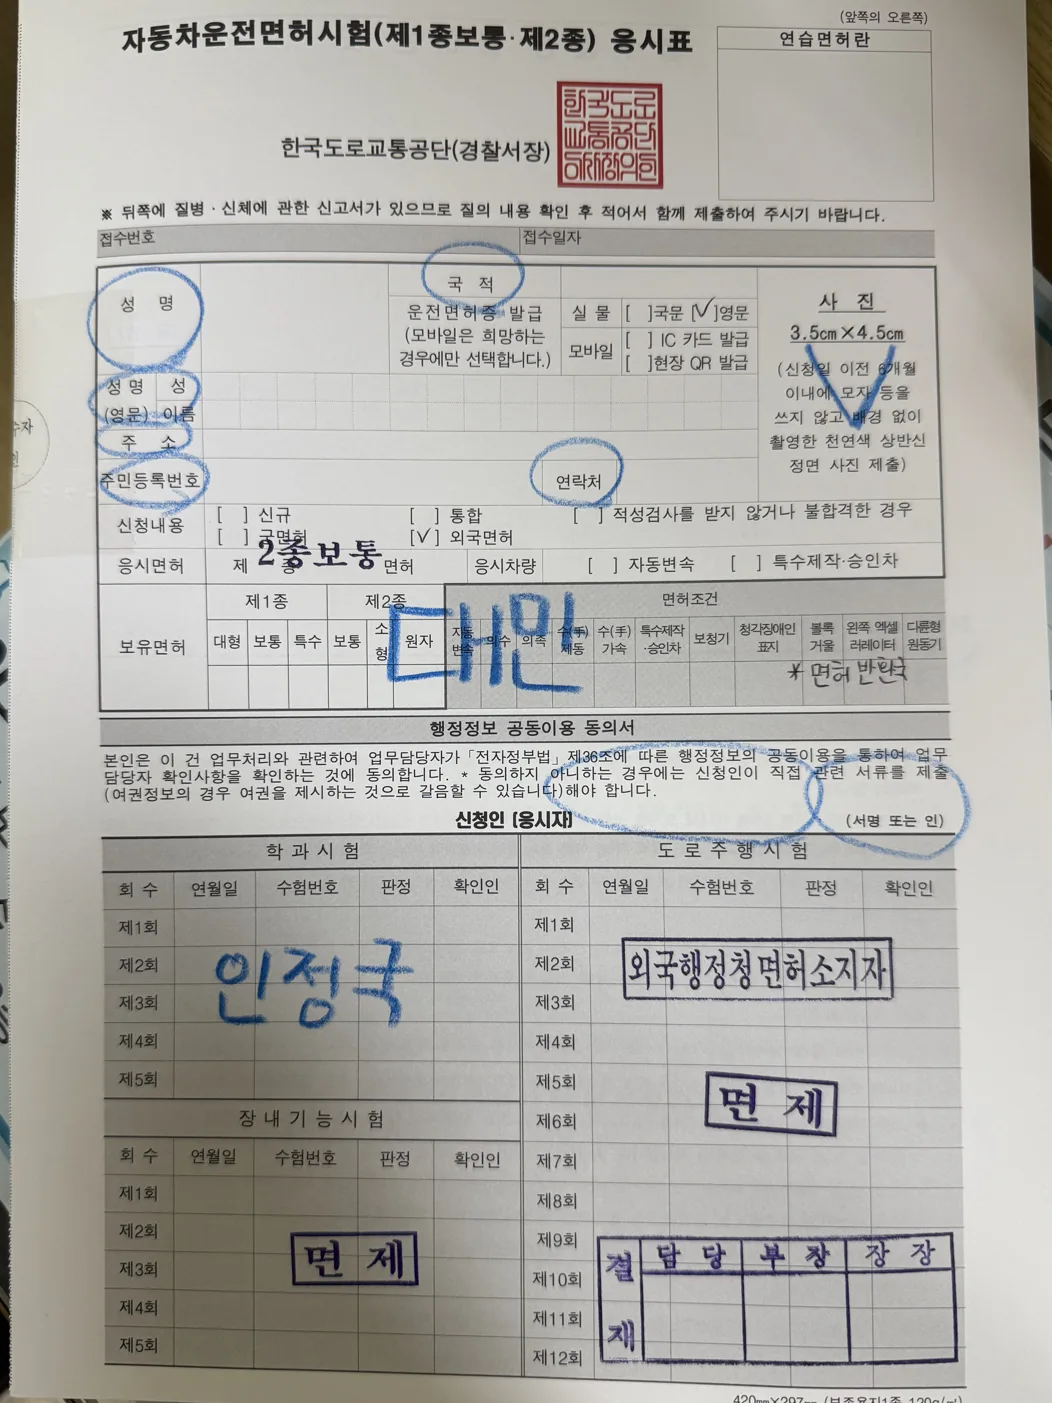 (앞쪽의 오른쪽)
자동차운전면허시험(제1종보통·제2종) 응시표
연습면허란
한국도로교통공단(경찰서장)
※ 뒤쪽에 질병·신체에 관한 신고서가 있으므로 질의 내용 확인 후 적어서 함께 제출하여 주시기 바랍니다.
접수번호 접수일자
성 명
국 적
운전면허증 발급
(모바일은 희망하는
경우에만 선택합니다.)
실 물 [ ]국문 [✓]영문
모바일 [ ] IC 카드 발급
[ ]현장 QR 발급
사 진
3.5cm×4.5cm
(신청일 이전 6개월
이내에 모자 등을
쓰지 않고 배경 없이
촬영한 천연색 상반신
정면 사진 제출)
성명 성
(영문) 이름
주 소
주민등록번호 연락처
신청내용 [ ] 신규 [ ] 통합 [ ] 적성검사를 받지 않거나 불합격한 경우
[ ] 군면허 [✓] 외국면허
2종보통
응시면허 제 종 면허 응시차량 [ ] 자동변속 [ ] 특수제작·승인차
보유면허 제1종 제2종 면허조건
대형 보통 특수 보통 소형 원자 자동변속 의수 의족 수(手)제동 수(手)가속 특수제작·승인차 보청기 청각장애인표지 볼록거울 왼쪽 엑셀러레이터 다륜형원동기
대만
* 면허 반환국
행정정보 공동이용 동의서
본인은 이 건 업무처리와 관련하여 업무담당자가 「전자정부법」 제36조에 따른 행정정보의 공동이용을 통하여 업무
담당자 확인사항을 확인하는 것에 동의합니다. * 동의하지 아니하는 경우에는 신청인이 직접 관련 서류를 제출
(여권정보의 경우 여권을 제시하는 것으로 갈음할 수 있습니다)해야 합니다.
신청인 (응시자) (서명 또는 인)
학과시험
회 수 연월일 수험번호 판정 확인인
제1회
제2회
제3회
제4회
제5회
인정국
장내기능시험
회 수 연월일 수험번호 판정 확인인
제1회
제2회
제3회
제4회
제5회
면 제
도로주행시험
회 수 연월일 수험번호 판정 확인인
제1회
제2회
제3회
제4회
제5회
제6회
제7회
제8회
제9회
제10회
제11회
제12회
외국행정청면허소지자
면 제
결재 담당 부장 장장